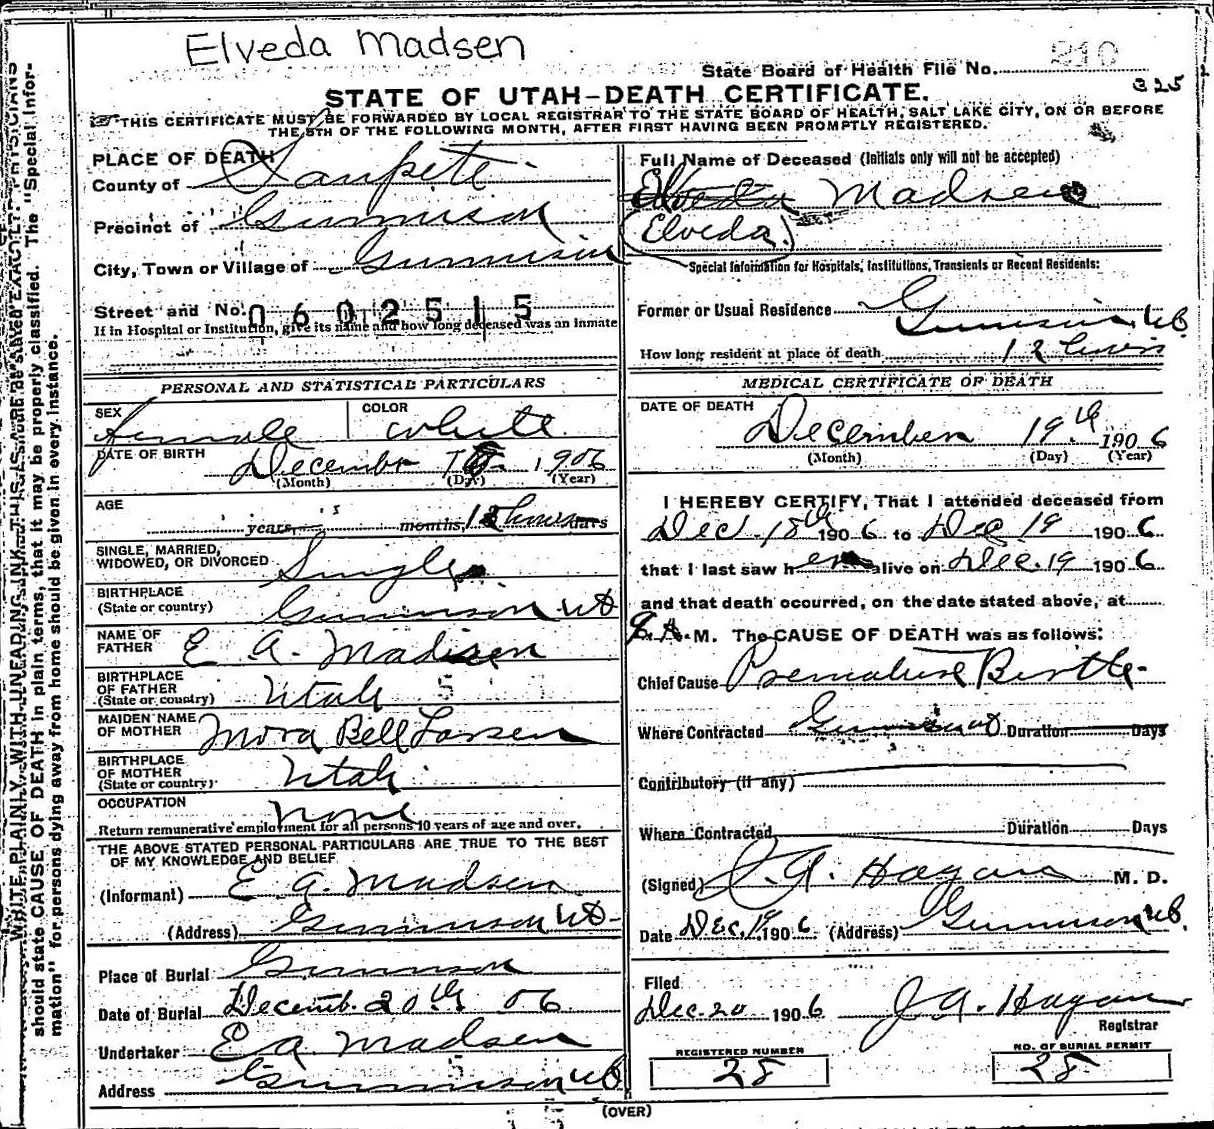 Elveda Madsen
210
State Board of Health File No.
325
STATE OF UTAH-DEATH CERTIFICATE.
THIS CERTIFICATE MUST BE FORWARDED BY LOCAL REGISTRAR TO THE STATE BOARD OF HEALTH, SALT LAKE CITY, ON OR BEFORE
THE 5TH OF THE FOLLOWING MONTH, AFTER FIRST HAVING BEEN PROMPTLY REGISTERED.
PLACE OF DEATH
County of Sanpete
Precinct of Gunnison
City, Town or Village of Gunnison
Street and No. 0602515
If in Hospital or Institution, give its name and how long deceased was an inmate
PERSONAL AND STATISTICAL PARTICULARS
SEX female COLOR white
DATE OF BIRTH December 1906
(Month) (Day) (Year)
AGE years, months, hours
SINGLE, MARRIED,
WIDOWED, OR DIVORCED Single
BIRTHPLACE
(State or country) Gunnison Ut
NAME OF
FATHER E A. Madsen
BIRTHPLACE
OF FATHER
(State or country) Utah 5
MAIDEN NAME
OF MOTHER Mora Bell Larsen
BIRTHPLACE
OF MOTHER
(State or country) Utah
OCCUPATION none
Return remunerative employment for all persons 10 years of age and over.
THE ABOVE STATED PERSONAL PARTICULARS ARE TRUE TO THE BEST
OF MY KNOWLEDGE AND BELIEF
(Informant) E a. Madsen
(Address) Gunnison Ut
Place of Burial Gunnison
Date of Burial Decemb. 20th 06
Undertaker E a. Madsen
5
Address Gunnison Ut
Full Name of Deceased (Initials only will not be accepted)
Elveda Madsen
(Elveda)
Special Information for Hospitals, Institutions, Transients or Recent Residents:
Former or Usual Residence Gunnison Ut
How long resident at place of death 12 hours
MEDICAL CERTIFICATE OF DEATH
DATE OF DEATH December 19th 1906
(Month) (Day) (Year)
I HEREBY CERTIFY, That I attended deceased from
Dec. 18th 1906 to Dec 19 1906
that I last saw her alive on Dec. 19 1906
and that death occurred, on the date stated above, at
A. M. The CAUSE OF DEATH was as follows:
Chief Cause Premature Birth
Where Contracted Gunnison Ut Duration Days
Contributory (if any)
Where Contracted Duration Days
(Signed) J. A. Hagan M. D.
Date Dec. 19 1906 (Address) Gunnison Ut.
Filed
Dec. 20 1906 J A. Hagan
Registrar
REGISTERED NUMBER
28
NO. OF BURIAL PERMIT
28
(OVER)
WRITE PLAINLY, WITH UNFADING INK
should state CAUSE OF DEATH in plain terms, that it may be properly classified. The "Special Infor-
mation" for persons dying away from home should be given in every instance.